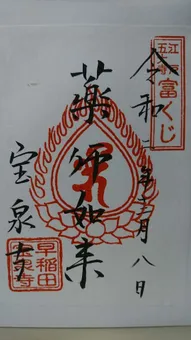 江戸
五街道
富くじ
令和二年六月八日
薬師如来
宝泉寺
早稲田
宝泉寺